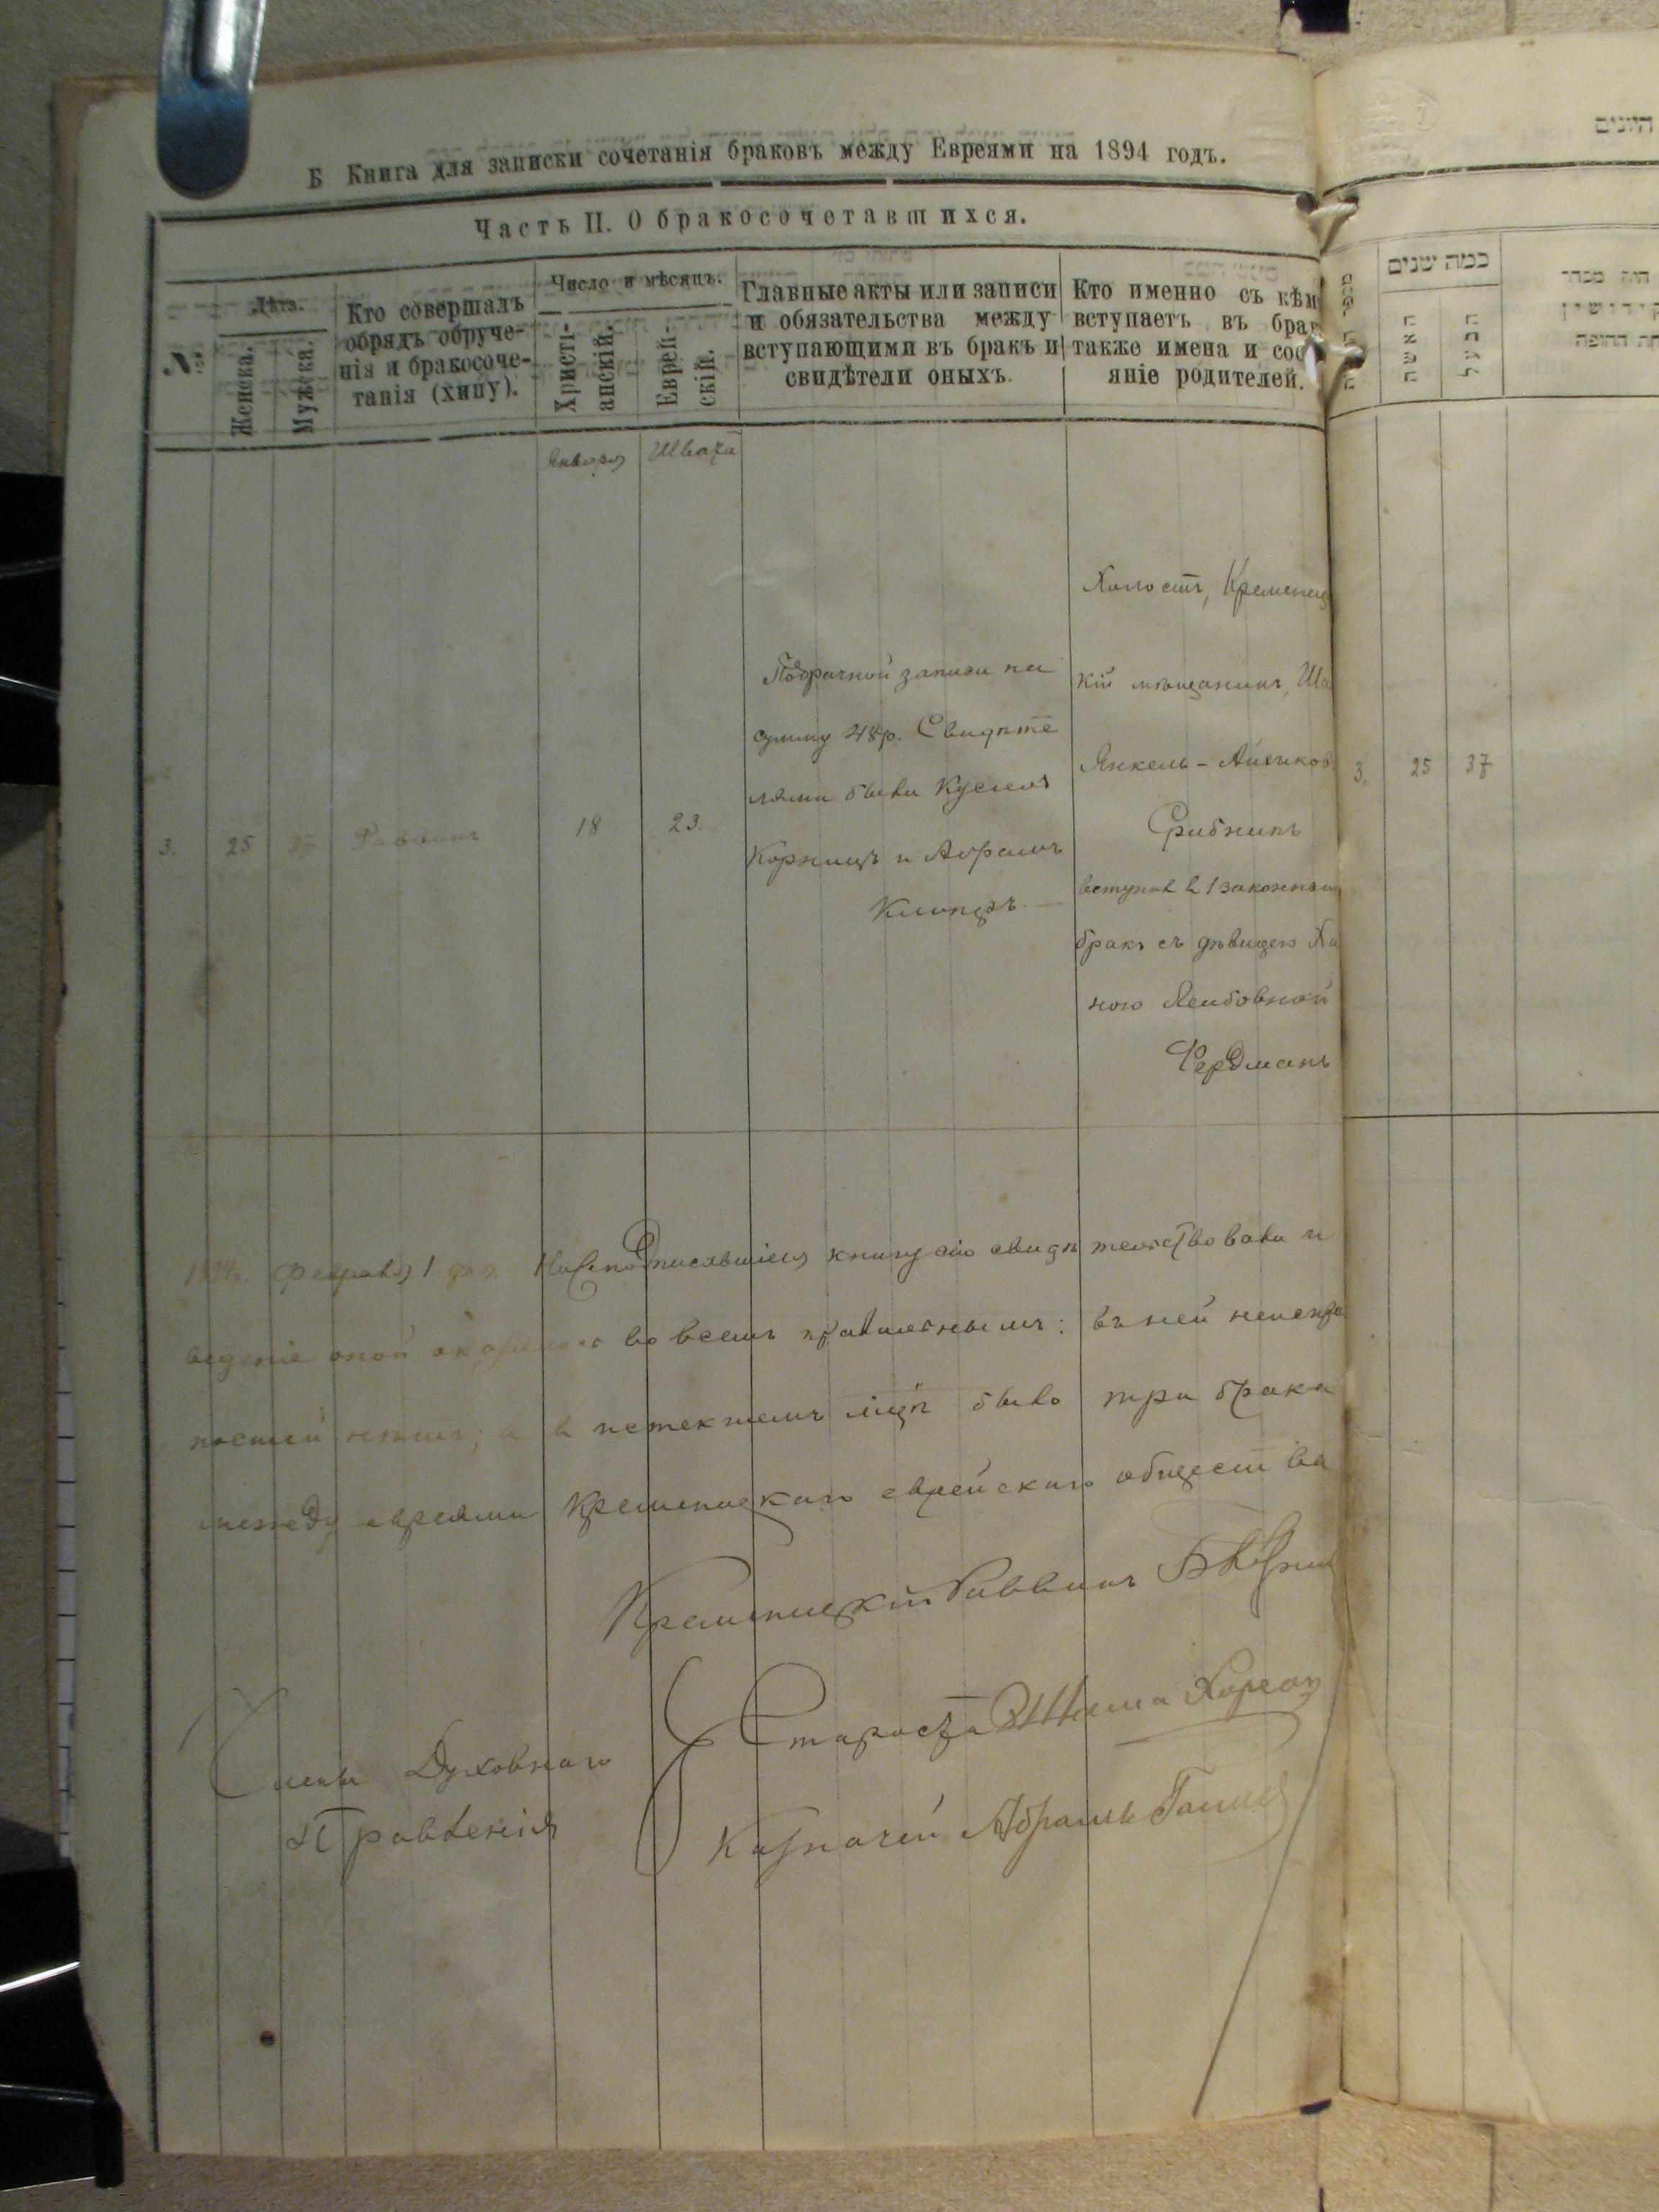 Б Книга для записки сочетанія браковъ между Евреями на 1894 годъ.
Часть II. О бракосочетавшихся.
№
Лѣта.
Женска.
Мужска.
Кто совершалъ
обрядъ обруче-
нія и бракосоче-
танія (хипу).
Число и мѣсяцъ.
Христі-
анскій.
Еврей-
скій.
Главные акты или записи
и обязательства между
вступающими въ бракъ и
свидѣтели оныхъ.
Кто именно съ кѣм
вступаетъ въ бра
также имена и сос
яніе родителей.
Января
Швата
3.
25
37
Раввинъ
18
23.
записи на
сумму 48р. Свидѣте
лями были Кусель
и Абрамъ
Холостъ, Кременец
кій мѣщанинъ, Ша
Янкель-
вступил в 1 законный
бракъ съ дѣвицею Ха
ною Лейбовной
Фердманъ
Февраля 1 дня. Нижеподписавшіеся книгу сію свидѣтельствовали и
веденіе оной оказалось во всемъ правильнымъ: въ ней неиспра
ностей нѣтъ; а в истекшемъ мцѣ было три брака
между евреями Кременецкаго еврейскаго общества
Кременецкій Раввинъ
Члены Духовнаго
Правленія
Староста
Казначей Абрамъ
כמה שנים
האשה
הבעל
היה מסדר
קידושין
3.
25
37